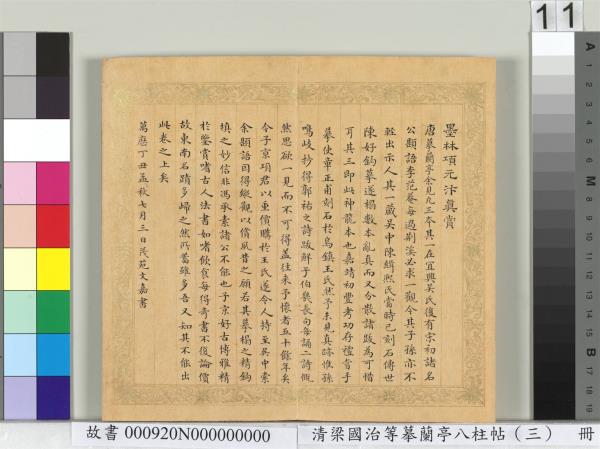 墨林項元汴真賞
唐摹蘭亭余見凡三本其一在宜興吳氏後有宋初諸名
公題語李范菴每過荆溪必求一觀今其子孫亦不
輕出示人其一藏吳中陳緝熙氏當時已刻石傳世
陳好鈎摹遂榻數本亂真而又分散諸跋為可惜
耳其三即此神龍本也嘉靖初豐考功存禮嘗手
摹使章正甫刻石於烏鎮王氏然予未見真跡惟孫
鳴岐抄得郭祐之詩跋鮮于伯幾長句每誦二詩慨
然思欲一見而不可得蓋往來予懷者五十餘年矣
今子京項君以重價購於王氏遂令人持至吳中索
余題語因得縱觀以償夙昔之願若其摹榻之精鈎
填之妙信非馮承素諸公不能也子京好古博雅精
於鑒賞嗜古人法書如嗜飲食每得奇書不復論價
故東南名蹟多歸之然所蓄雖多吾又知其不能出
此卷之上矣
萬歷丁丑孟秋七月三日茂苑文嘉書
11
A
M
B
故書 000920N000000000
清梁國治等摹蘭亭八柱帖（三） 冊